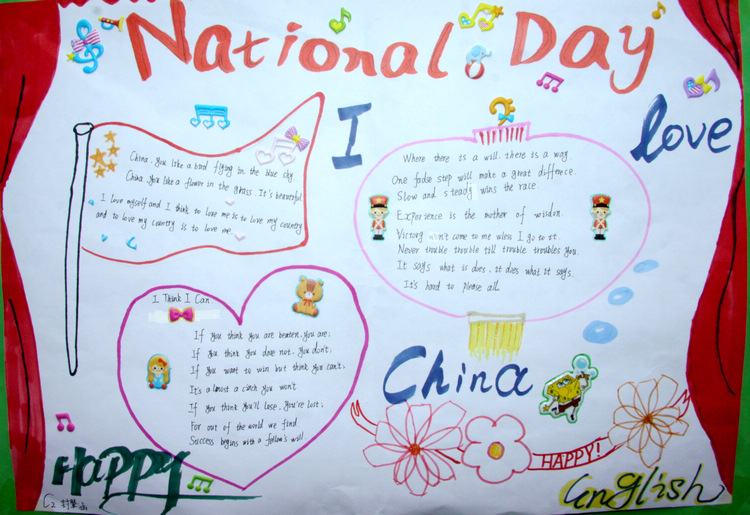 National Day
I love
China. You like a bird flying in the blue sky
China, you like a flower in the grass. It's beautiful
I love myself and I think to love me is to love my country
and to love my country is to love me.
Where there is a will. there is a way.
One false step will make a great difference.
Slow and steady wins the race.
Experience is the mother of wisdom.
Victory won't come to me unless I go to it.
Never trouble trouble till trouble troubles you.
It says what is does, it does what it says.
It's hard to please all.
I Think I Can
If you think you are beaten, you are;
If you think you dove not, You don't;
If you want to win but think you can't;
It's almost a cinch you won't
If you think you'll lose, You're lost;
For out of the world we find
Success begins with a fellow's will
China
HAPPY!
Happy
English
C2